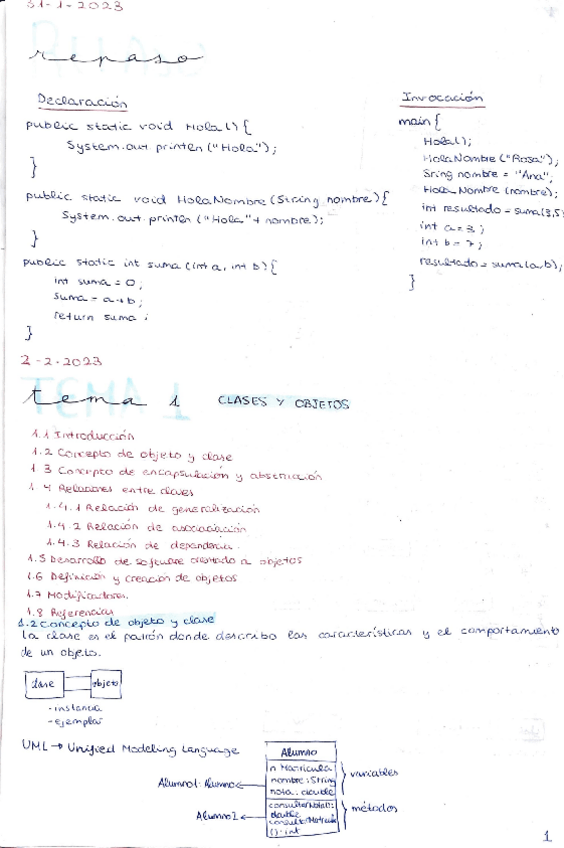 31-1-2023
repaso
Declaración
public static void Hola() {
System.out println ("Hola");
}
public static void HolaNombre (String nombre) {
System.out println ("Hola" + nombre);
}
public static int suma (int a, int b) {
int suma = 0;
suma = a+b;
return suma ;
}
Invocación
main {
Hola();
HolaNombre ("Rosa");
Sring nombre = "Ana";
Hola Nombre (nombre);
int resultado = suma(3,5)
int a=3;
int b = 7;
resultado = suma(a,b);
}
2-2-2023
TEMA 1
tema 1 CLASES Y OBJETOS
1.1 Introducción
1.2 Concepto de objeto y clase
1.3 Concepto de encapsulación y abstracción
1.4 Relaciones entre clases
1.4.1 Relación de generalización
1.4.2 Relación de asociación
1.4.3 Relación de dependencia.
1.5 Desarrollo de software orientado a objetos
1.6 Definición y creación de objetos
1.7 Modificadores.
1.8 Referencias
1.2 Concepto de objeto y clase
La clase es el patrón donde describo las características y el comportamiento
de un objeto.
clase objeto
- instancia
- ejemplar
UML → Unified Modeling Language
Alumno
n Matricula
nombre: String
nota: double
variables
consultarNota():
double
():int
métodos
Alumno1: Alumno
Alumno2
1